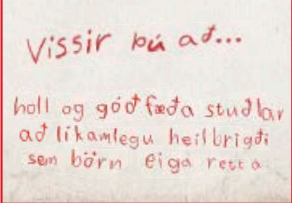 Vissir þú að...
holl og góð fæða stuðlar
að líkamlegu heilbrigði
sem börn eiga rétt á